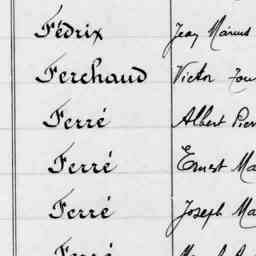 Fédrix Jean Marius
Ferchaud Victor
Ferré Albert
Ferré Ernest
Ferré Joseph
Ferré